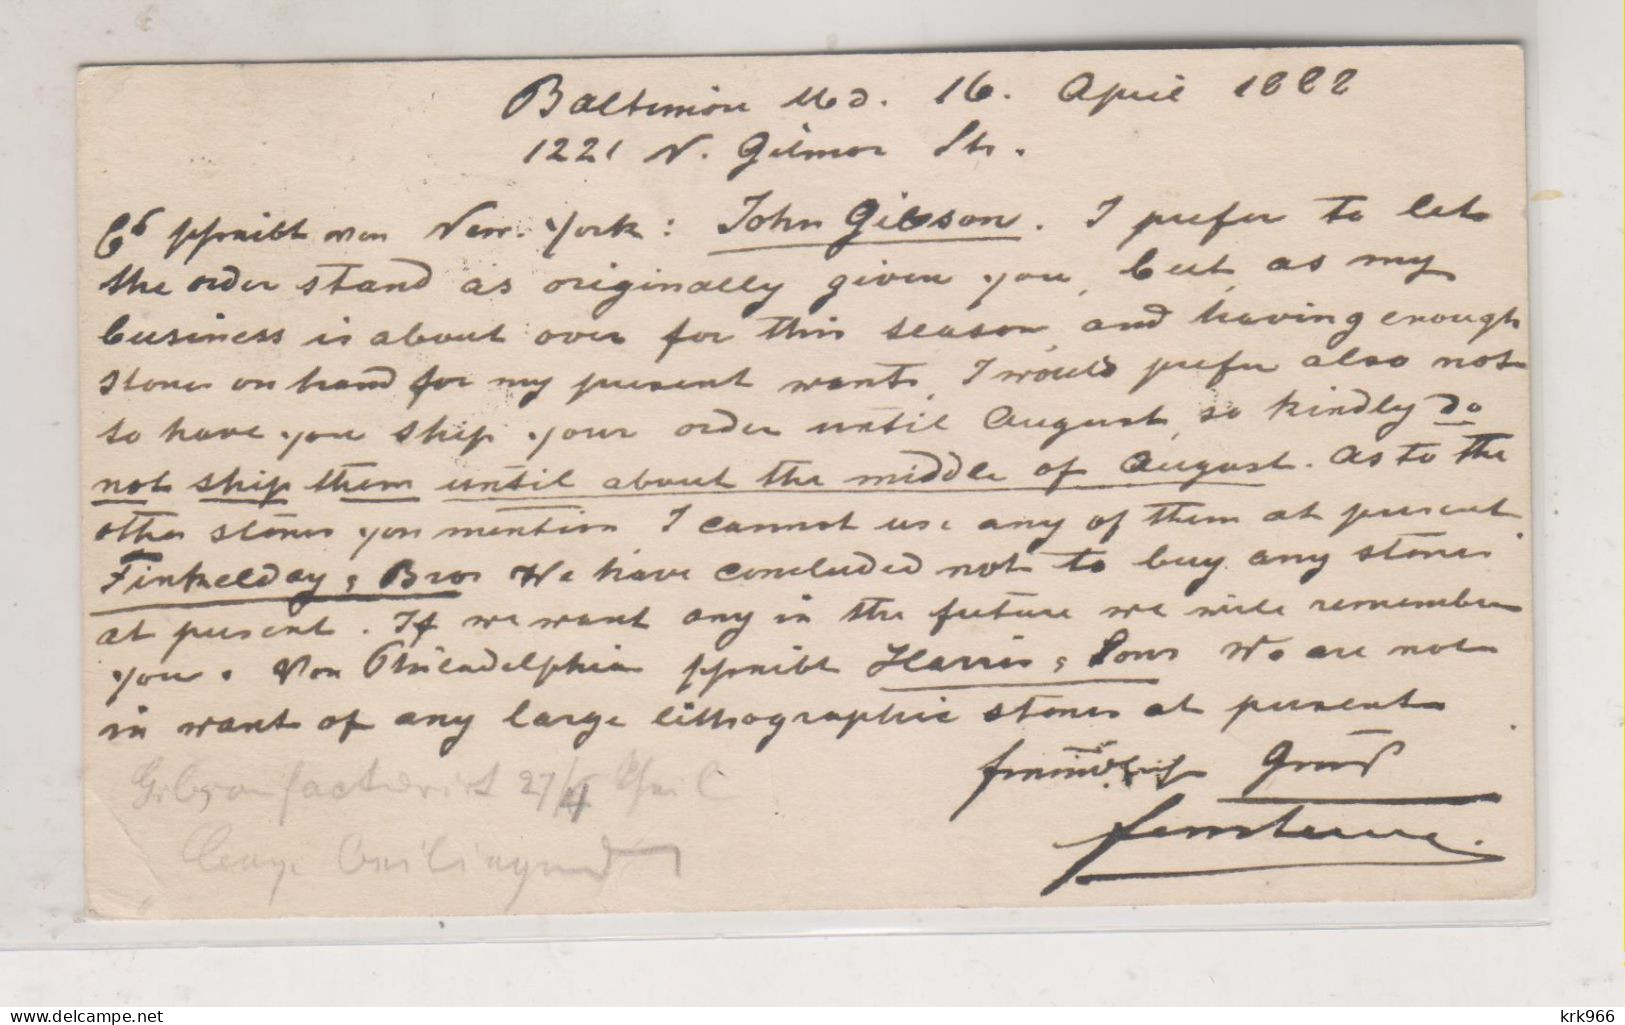 Baltimore Md. 16. April 1888
1221 N. Gilmor Str.
Es schreibt von New-York: John Gibson. I prefer to let
the order stand as originally given you, but, as my
business is about over for this season, and having enough
stones on hand for my present wants, I would prefer also not
to have you ship your order until August, so kindly do
not ship them until about the middle of August. As to the
other stones you mention I cannot use any of them at present.
Finkelday & Bros We have concluded not to buy any stones
at present. If we want any in the future we will remember
you. Von Philadelphia schreibt Harris & Sons We are not
in want of any large lithographic stones at present
freundlich Gruß
27/4
www.delcampe.net
krk966